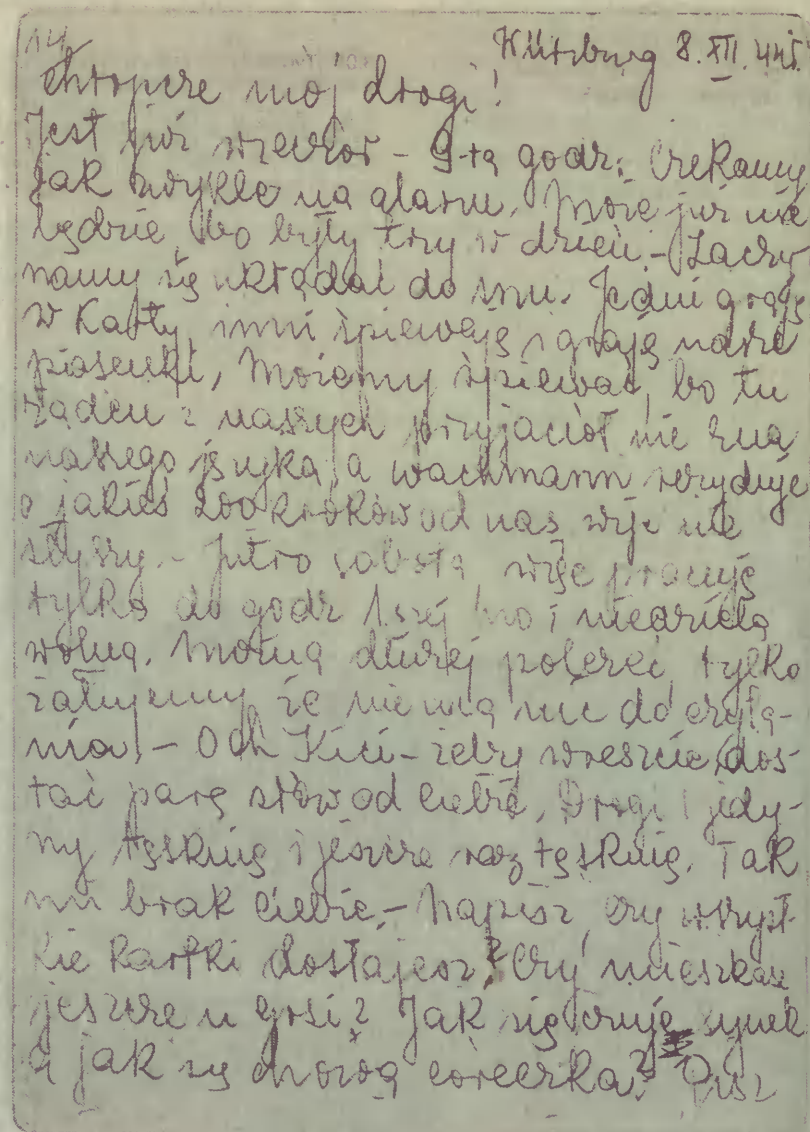 14
Würzburg 8.XII.44r.
Chłopcze mój drogi!
Jest już wieczór – 9-ta godz. Czekamy
jak zwykle na alarm. Może już nie
będzie, bo były trzy w dzień. – Zaczy
namy się układać do snu. Jedni grają
w Karty, inni śpiewają i grają nasze
piosenki, Możemy śpiewać, bo tu
żaden z naszych przyjaciół nie zna
naszego języka, a wachmann rezyduje
o jakieś 200 kroków od nas więc nie
słyszy. – Jutro sobota, więc pracuję
tylko do godz 1szej no i niedziela
wolna. Można dłużej poleżeć, tylko
żałujemy że nie ma nic do czyta-
nia. – Och Kici – żeby wreszcie dos-
tać parę słów od Ciebie. Drogi i jedy-
ny tęsknię i jeszcze raz tęsknię. Tak
mi brak Ciebie. – Napisz, czy wszyst-
kie Kartki dostajesz? Czy mieszkasz
jeszcze u Gosi? Jak się czuje synek
a jak się chowa córeczka? Pisz